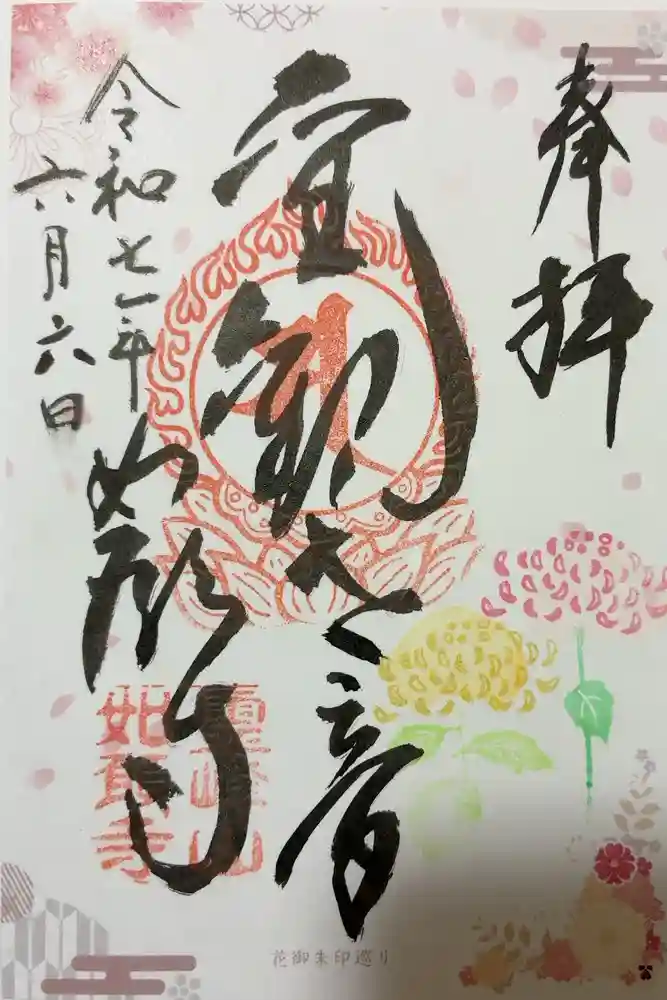 奉拝
聖観世音
令和七年
六月六日
如願寺
花御朱印巡り